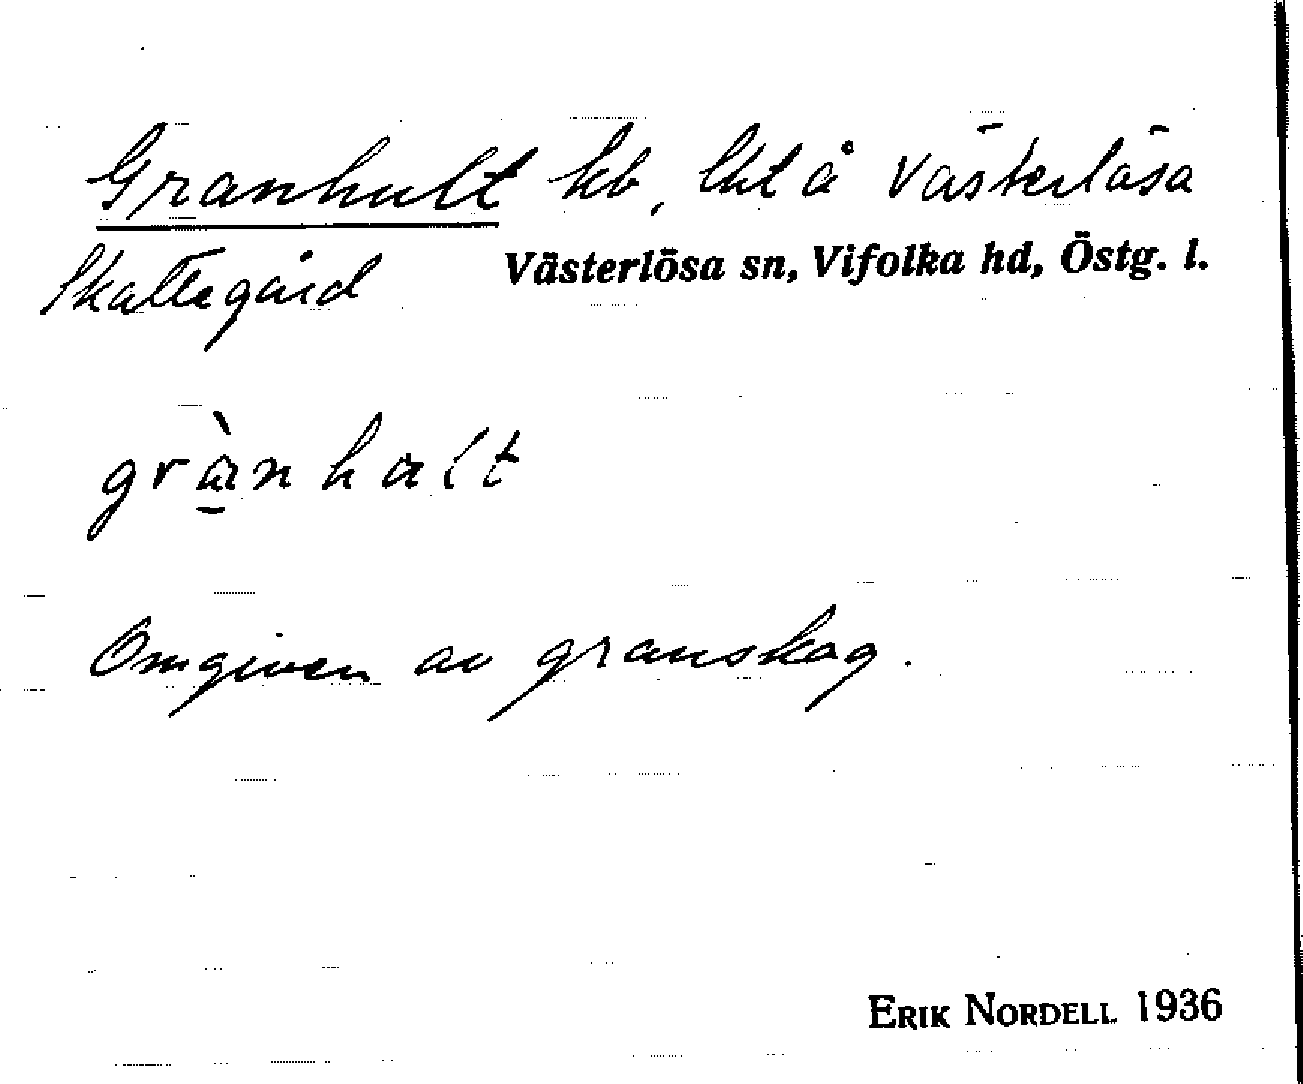 Granhult hb, lht å Västerlösa
Skattegård
Västerlösa sn, Vifolka hd, Östg. l.
grànhalt
Omgiven av granskog.
ERIK NORDELL 1936